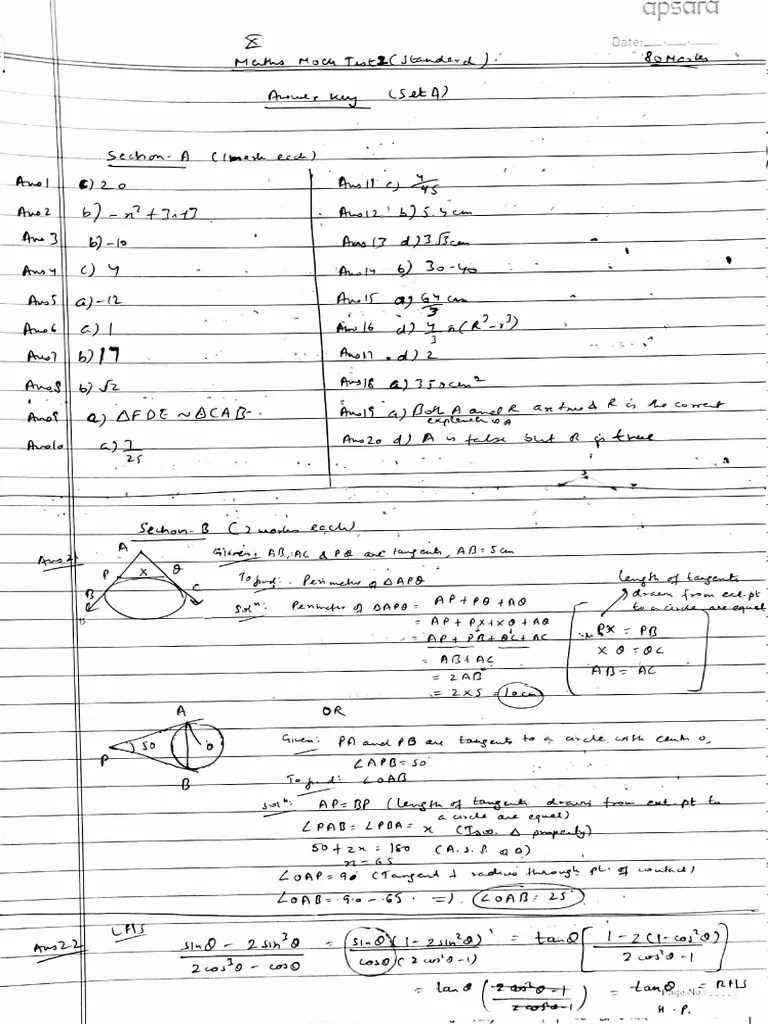 apsara
Date:
X
Maths Mock Test 2 (Standard)
80 Marks
Answer Key (Set A)
Section-A (1 mark each)
Ans1 c) 20
Ans2 b) -x² + 3x+3
Ans3 b) -10
Ans4 c) 4
Ans5 a) -12
Ans6 a) 1
Ans7 b) 17
Ans8 b) √2
Ans9 a) ΔFDE ~ ΔCAB
Ans10 a) 7/25
Ans11 c) 4/45
Ans12 b) 5.4cm
Ans13 d) 3√3cm
Ans14 b) 30-40
Ans15 a) 64/3 cm
Ans16 d) 4/3 π(R³-r³)
Ans17 d) 2
Ans18 a) 350cm²
Ans19 a) Both A and R are true & R is the correct
explanation of A
Ans20 d) A is false but R is true
Section-B (2 marks each)
Ans21
A
P X Q
B C
Given: AB, AC & PQ are tangents, AB=5cm
To find: Perimeter of ΔAPQ
Soln: Perimeter of ΔAPQ = AP+PQ+AQ
= AP+PX+XQ+AQ
= AP+PB+QC+AC
= AB+AC
= 2AB
= 2×5 = 10cm
Length of tangents
drawn from ext. pt
to a circle are equal
PX = PB
XQ = QC
AB = AC
OR
A
P 50 O
B
Given: PA and PB are tangents to a circle with centre O,
∠APB=50°
To find: ∠OAB
Soln: AP=BP (length of tangents drawn from ext. pt to
a circle are equal)
∠PAB=∠PBA=x (Isos. Δ property)
50+2x=180 (A.S.P. of Δ)
x=65
∠OAP=90° (Tangent ⊥ radius through pt. of contact)
∠OAB=90-65 => ∠OAB=25°
Ans22
LHS
sinθ - 2sin³θ / 2cos³θ - cosθ = sinθ(1-2sin²θ) / cosθ(2cos²θ-1) = tanθ [1-2(1-cos²θ) / 2cos²θ-1]
= tanθ (2cos²θ-1 / 2cos²θ-1) = tanθ = RHS
Page No.
H.P.